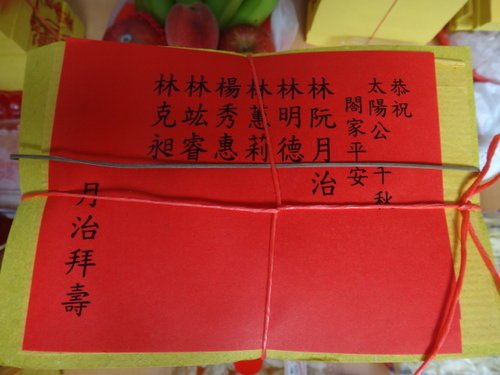 恭祝
太陽公 千秋
閤家平安
林阮月治
林明德
林蕙莉
楊秀惠
林竑睿
林克昶
月治拜壽